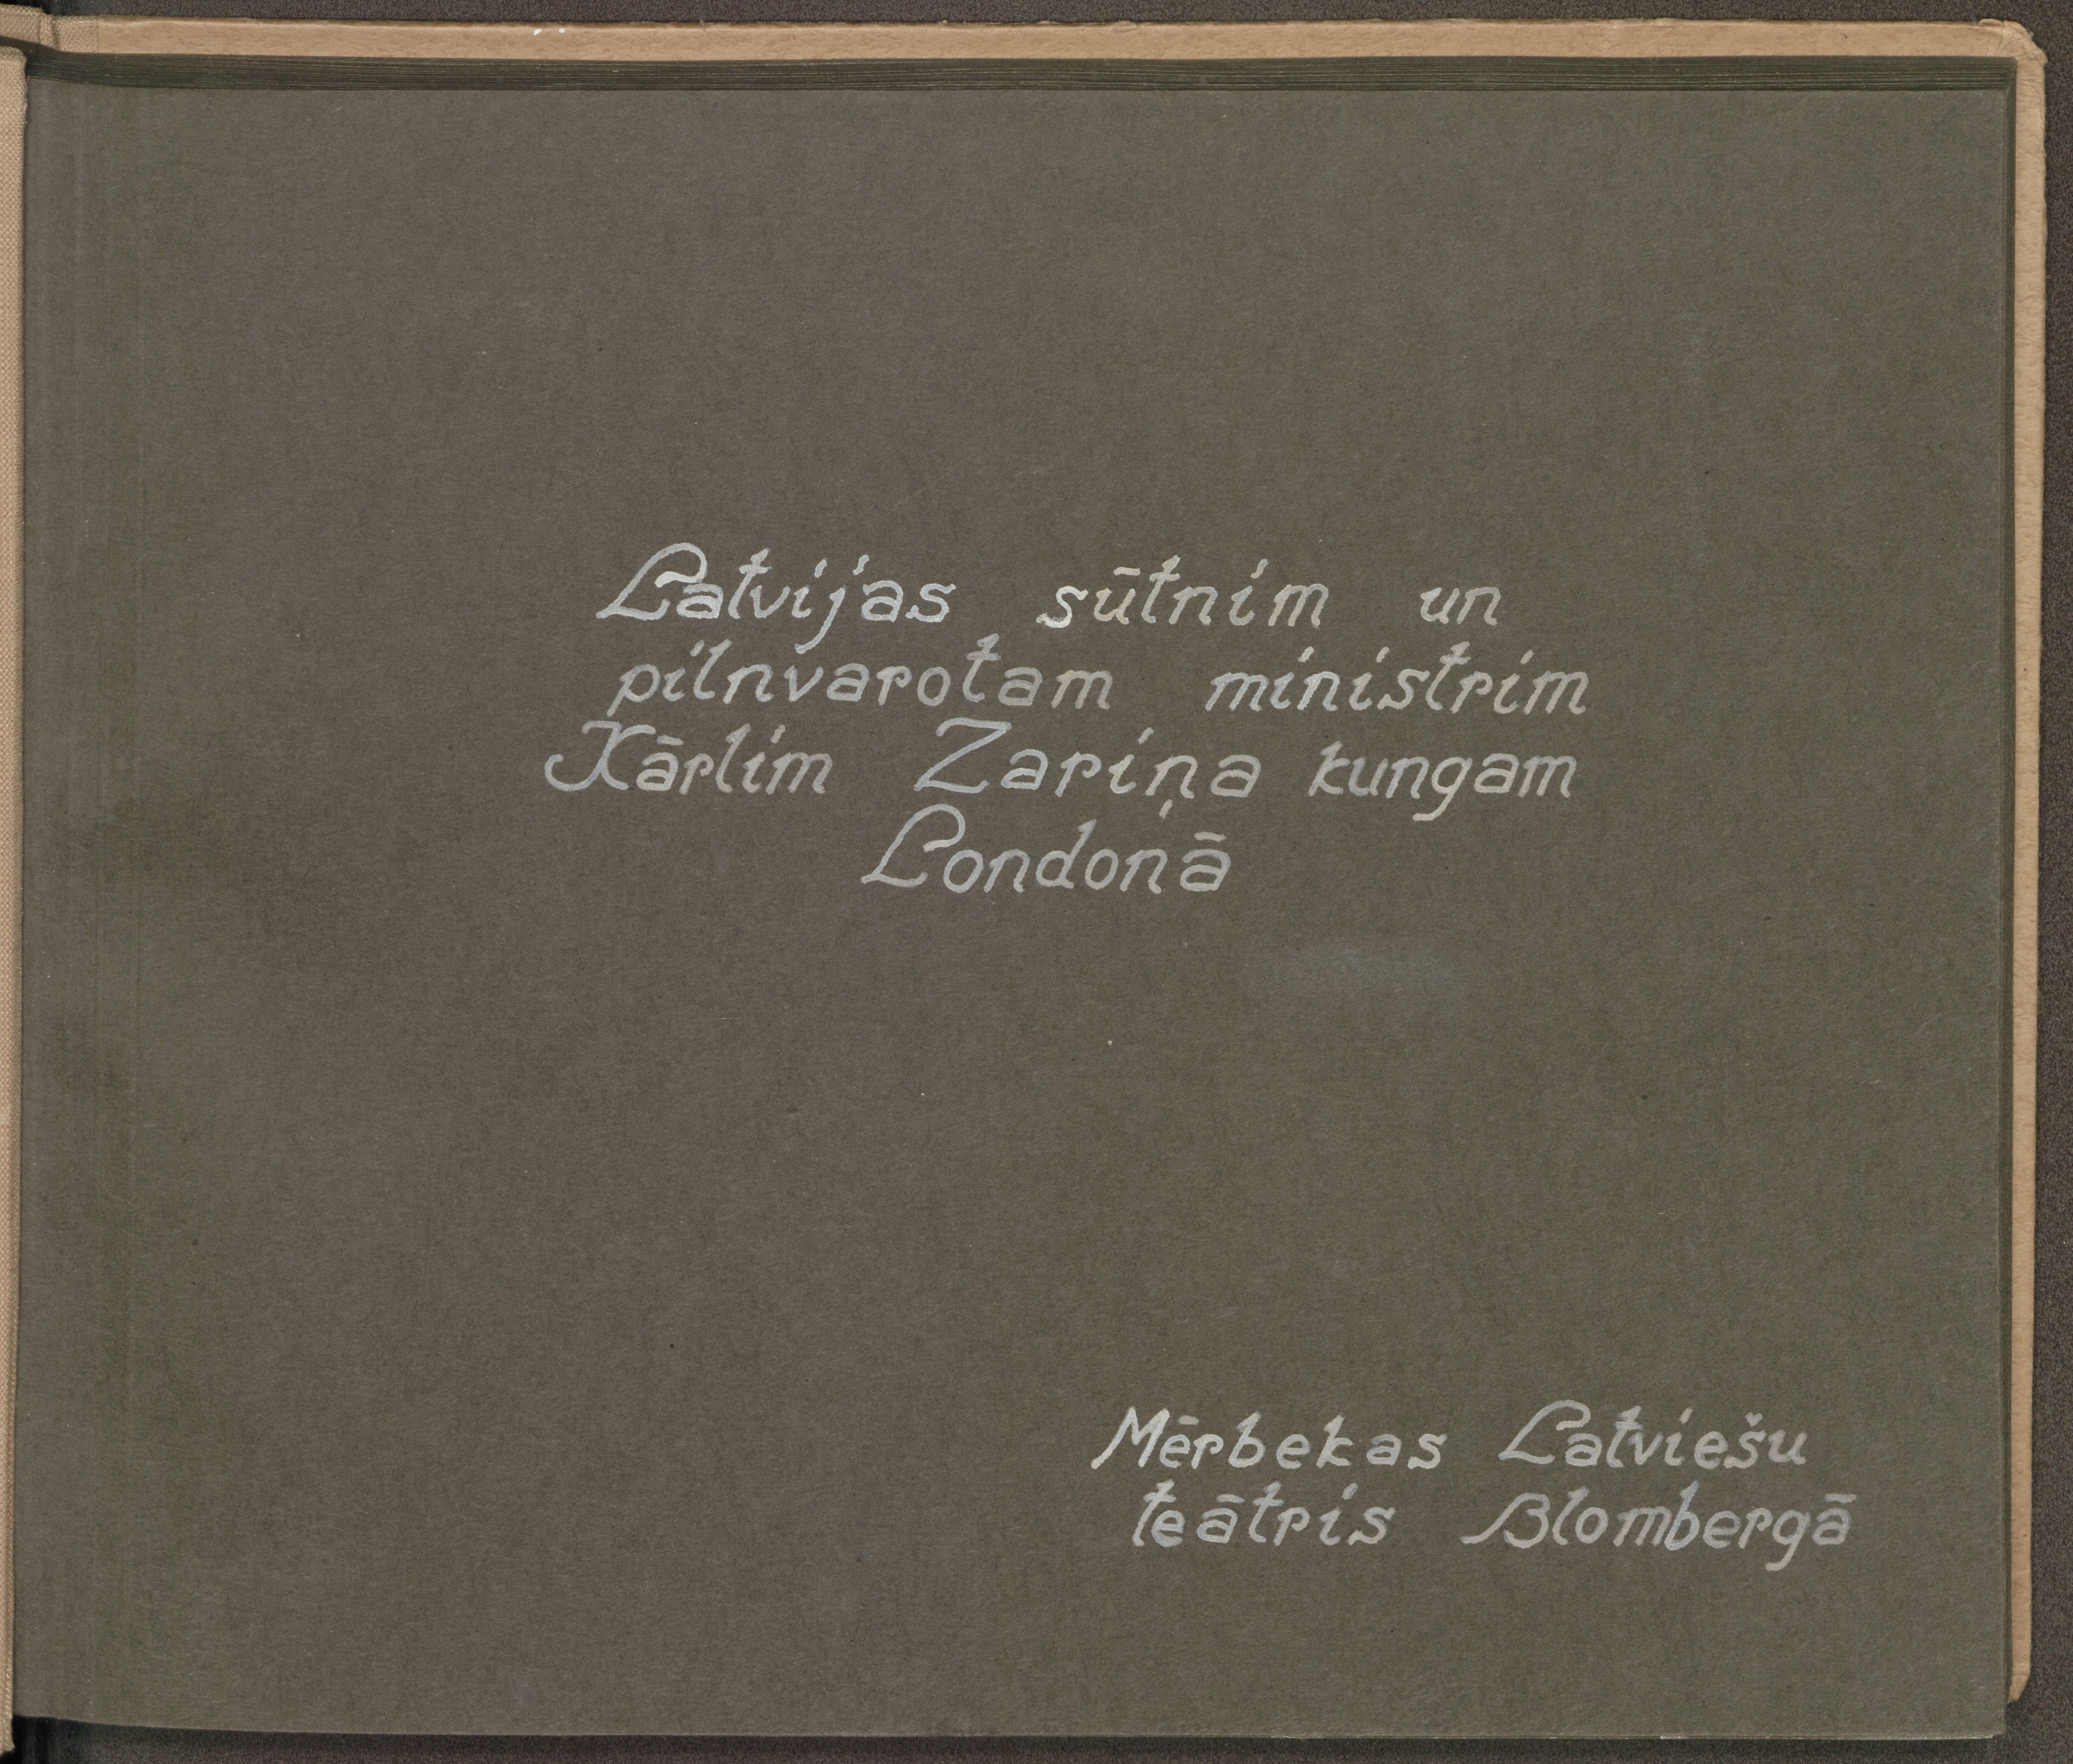 Latvijas sūtnim un
pilnvarotam ministrim
Kārlim Zariņa kungam
Londonā
Mērbekas Latviešu
teātris Blombergā